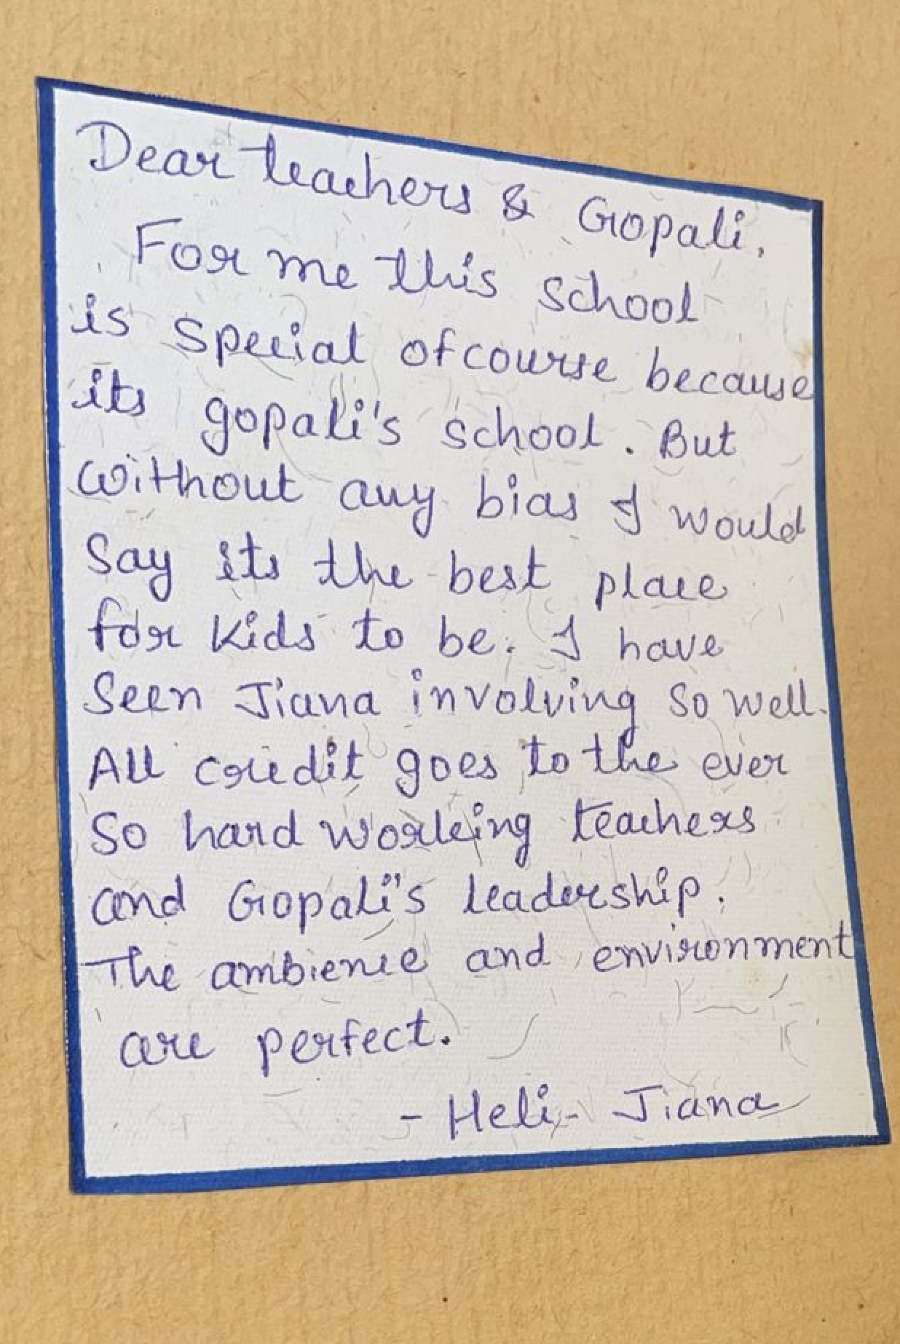 Dear teachers & Gopali,
For me this school
is special ofcourse because
its gopali's school. But
without any bias I would
Say its the best place
for kids to be. I have
Seen Jiana involving so well.
All credit goes to the ever
So hard working teachers
and Gopali's leadership.
The ambience and environment
are perfect.
- Heli - Jiana